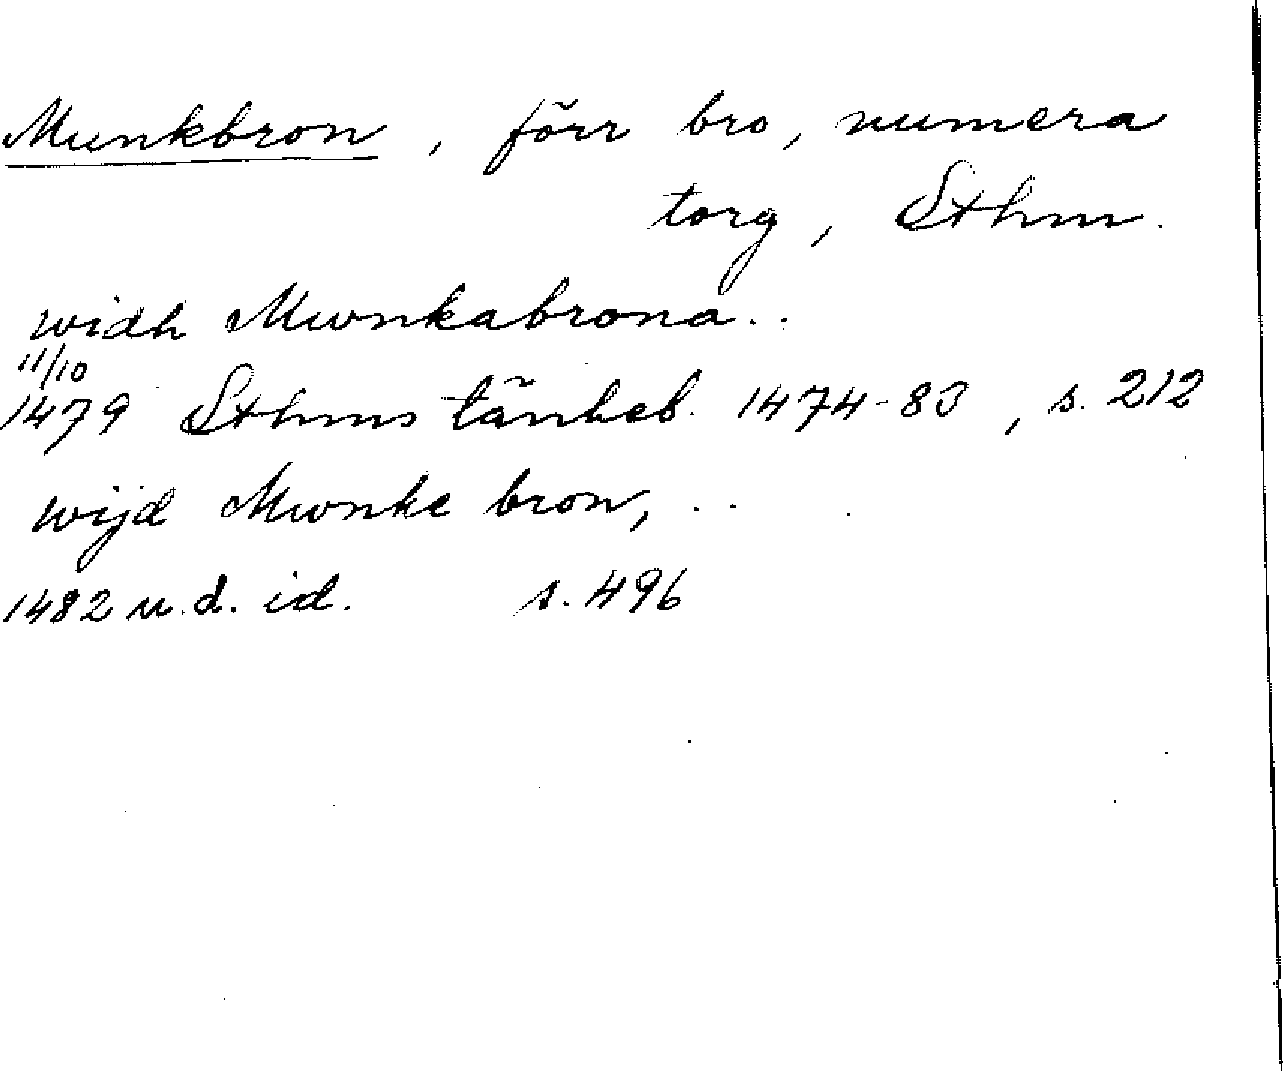 Munkbron, förr bro, numera
torg, Sthm.
widh Mwnkabrona..
11/10
1479 Sthms tänkeb. 1474-83, s. 212
wijd Mwnke bron, ..
1482 u.d. id. s. 496